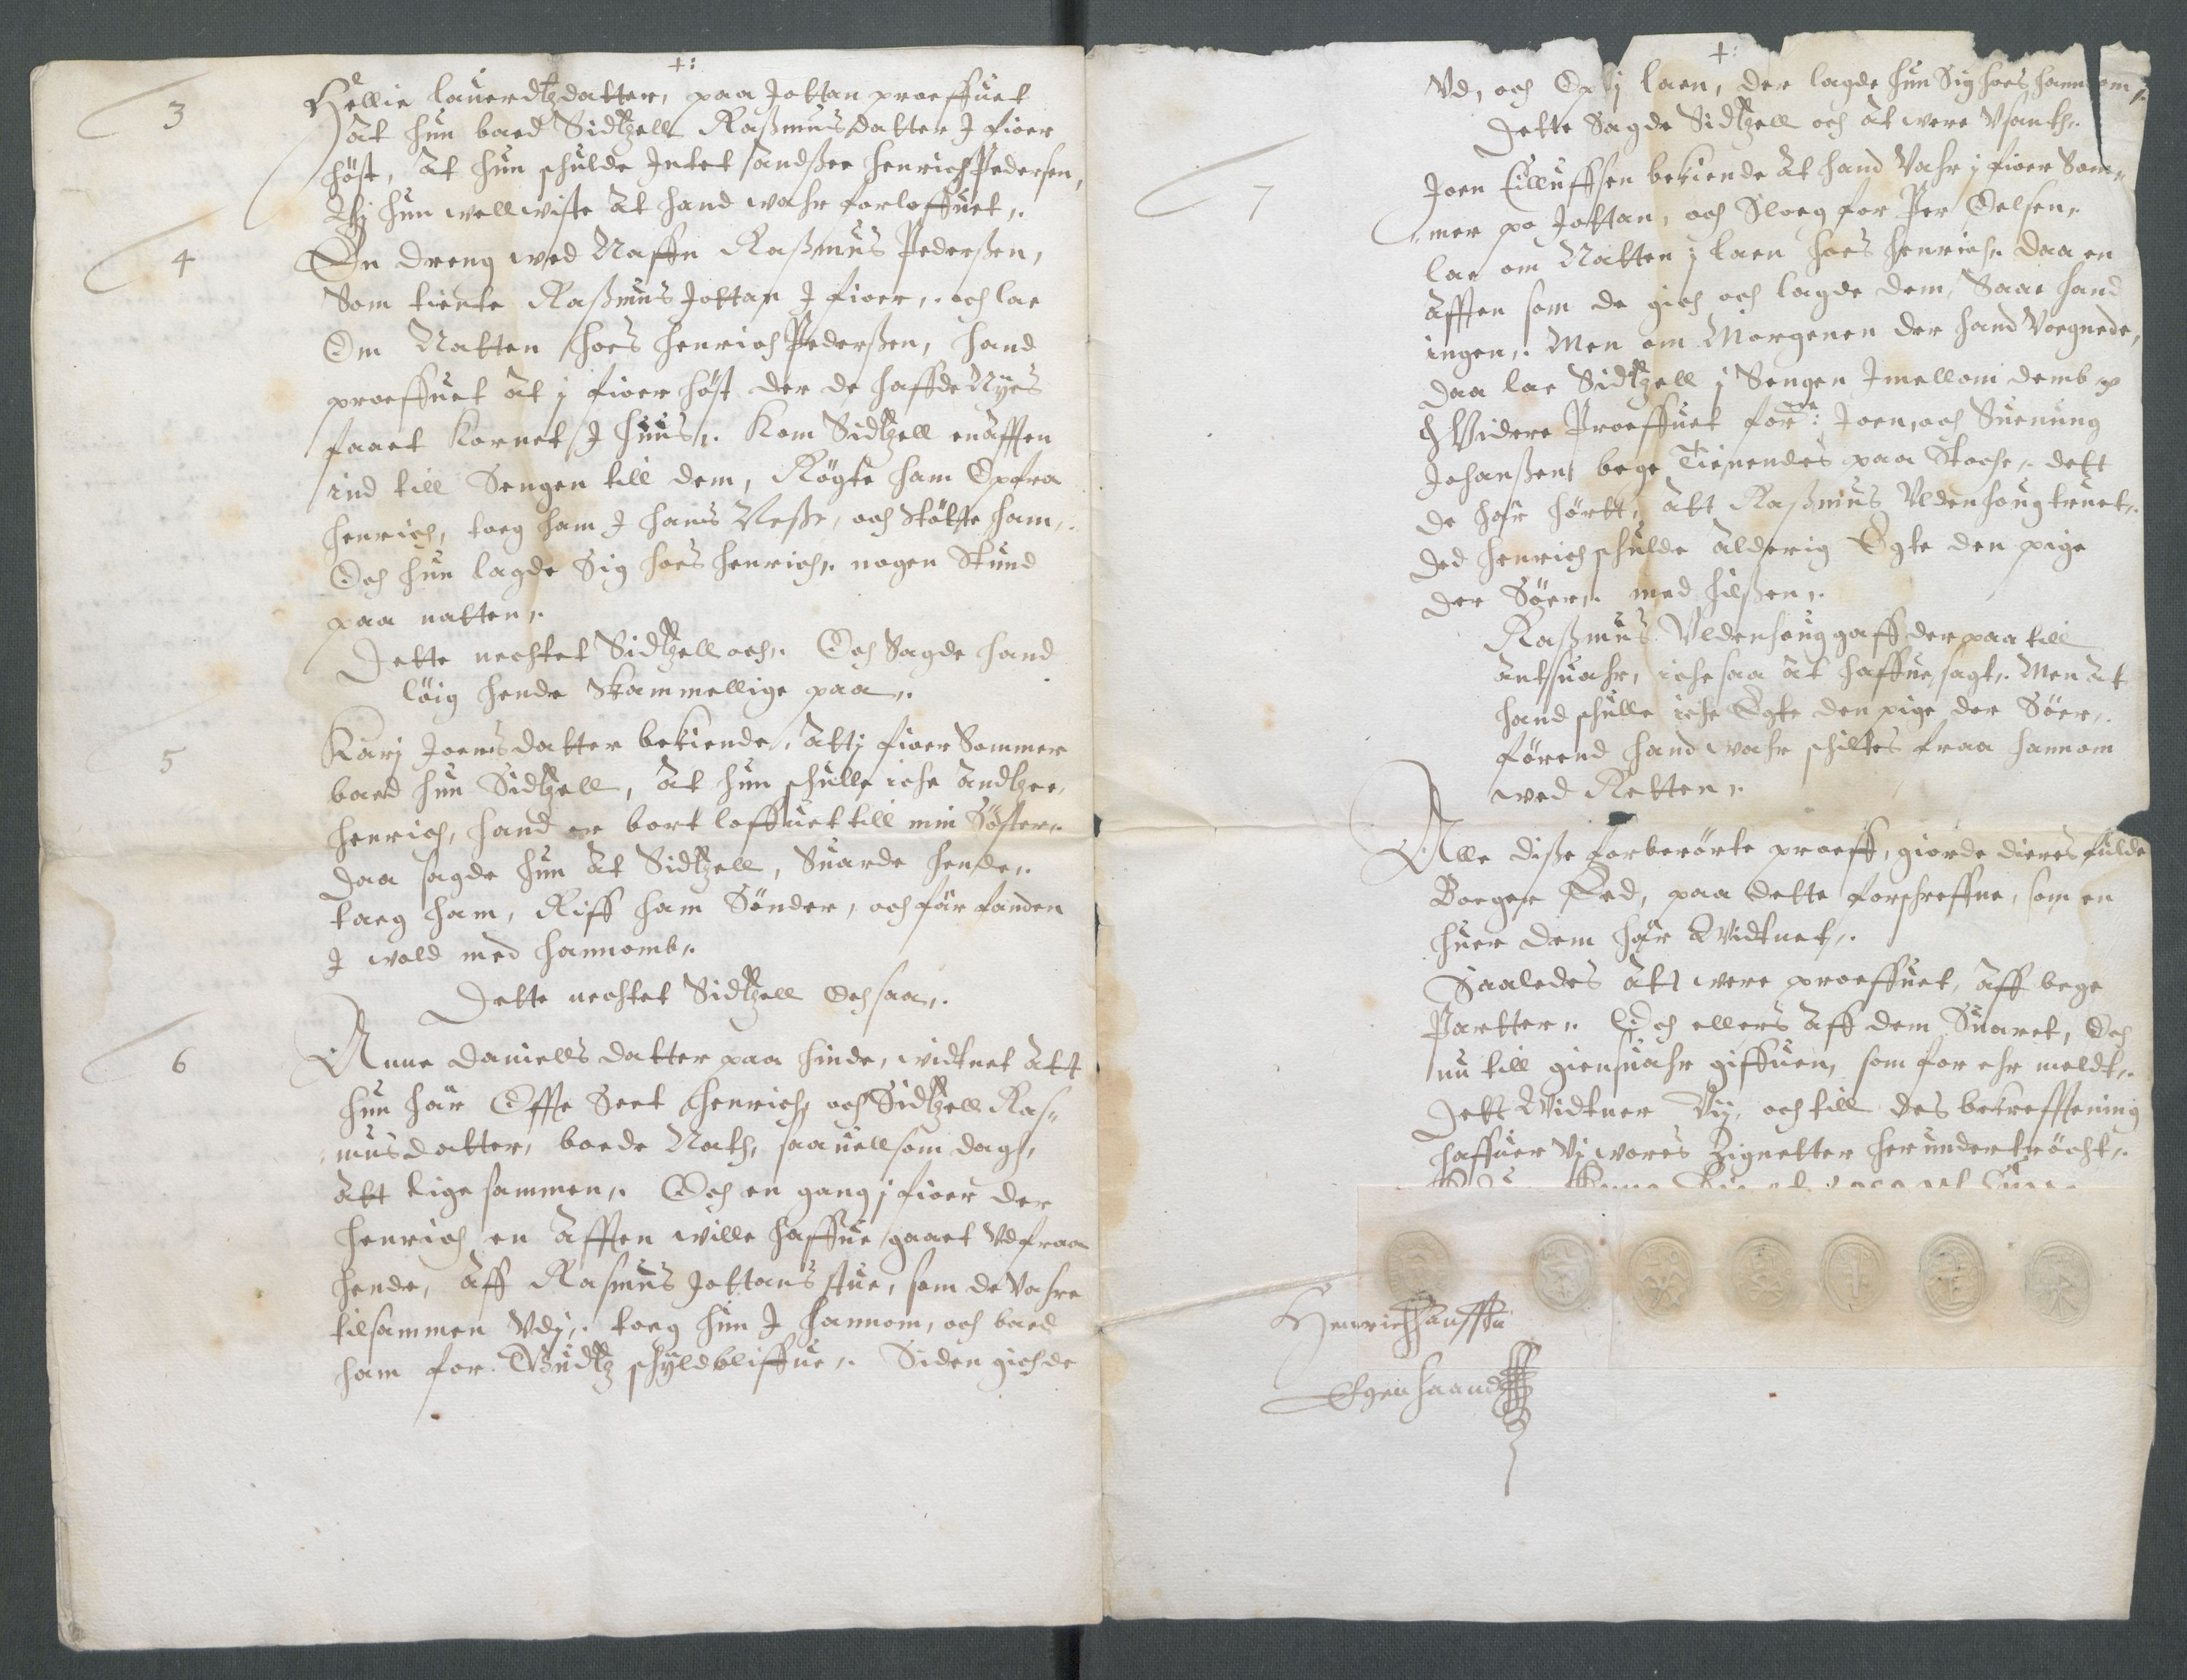 +:
3
Hellie lauerdtzdatter, paa Jottan proeffuet
at hun baed Sidtzell Raßmusdatter J fioer
höst, At hun schulde Jntet andßee Henrich Pedersen,
Thj hun well viste At hand wahr forloffuet,.
4
En dreng wed Naffn Raßmus Pederßen,
Som tiente Raßmus Jottan J fioer,. och lae
Om Natten hoes Henrich Pederßen, hand
proeffuet At j fioer höst der de haffde Nyes
faaet Kornet J Huus,. Kom Sidtzell en Afften
ind till Sengen till dem, Rögte ham Op fra
Henrich, toeg ham J hans Neße, och Stötte ham,.
Och hun lagde Sig hoes Henrich,. nogen Stund
paa natten,.
Dette nechtet Sidtzell och,. Och Sagde hand
löig hende Skammellige paa,.
5
Karj Joensdatter bekiende, Att j fioer Sommer
baed hun Sidtzell, At hun schulle iche Andtzee,
Henrich, hand er bort loffuet till min Söster,.
Daa sagde hun At Sidtzell, Suarde hende,.
taeg ham, Riff ham Sönder, och får fanden
J vold med hannomb,.
Dette nechtet Sidtzell Och saa,.
6
Anne Daniellsdatter paa Hinde, widtnet Att
hun hår Offte Seet Henrich och Sidtzell Ras¬
musdatter, baede Nath, saauellsom dags,
Att lige sammen,. Och en gang j fioer der
Henrich en Afften wille haffue gaaet Vd fraa
hende, Aff Rasmus Jottans stue, som de Vahre
tilsammen Vdj,. toeg hun J hannom, och baed
ham for Gudtz schyld bliffue,. Siden gich de
+:
Vd, och Op j laen, der lagde hun Sig hoes hannom,.
Dette Sagde Sidtzell och At were Vsanth,.
7
Joen Eilluffsen bekiende At hand Vahr j fioer Som¬
mer po Jottan, och Sloeg for Per Oelsen,.
lae om Natten j laen hoes Henrich,. Daa en
Afften som de gich och lagde dem, Saae hand
ingen,. Men om Morgenen der hand Voegnede,
Daa lae Sidtzell j Sengen Jmellom demb,
Widere Proeffuet forne: Joen, och Suenung
Johanßen, bege Tienendes paa Stoche,. dett
De hår hörtt, Att Raßmus Vldenhoug truet,.
Ded Henrich schulde Alderig Egte den pige
der Söer,. med hilßen,.
Raßmus Vldenhoug gaff der paa till
Antsuahr, iche saa At haffue sagt,. Men At
hand schulle iche Egte den pige der Söer,.
förend hand wahr schiltes fraa hannom
wed Retten,.
Alle diße forberörte proeff, giorde dieres fulde
Boeger Eed, paa dette forschreffne, som en
huer dem hår Widtnet,.
Saaledes Att were proeffuet, Aff bege
Partter,. Och ellers Aff dem Suaret, Och
nu till giensuahr giffuen, som for ehr meldt,.
Dett Widtner Vij, och till des bekrefftening
haffuer Vj wores Zignetter her undertröcht,.
Henrich Hansßen
Egen haand